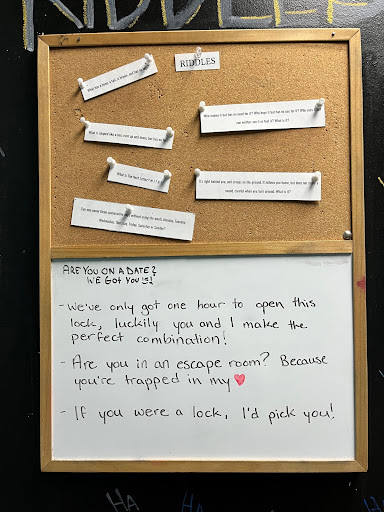 RIDDLES
RIDDLES
What has a head, a tail, is brown, and has no legs?
Who makes it but has no need for it? Who buys it but has no use for it? Who uses it but
can neither see it or feel it? What is it?
What is shaped like a box, has no
What is the next letter?
It's right behind you, and creeps on the ground. It follows you home, but does not make a
sound. Careful when you turn around. What is it?
Can you name three consecutive days without using the words Monday, Tuesday,
Wednesday, Thursday, Friday, Saturday or Sunday?
ARE YOU ON A DATE?
WE GOT YOU!
- We've only got one hour to open this
lock, luckily you and I make the
perfect combination!
- Are you in an escape room? Because
you're trapped in my ♥
- If you were a lock, I'd pick you!
HA
HA
HA